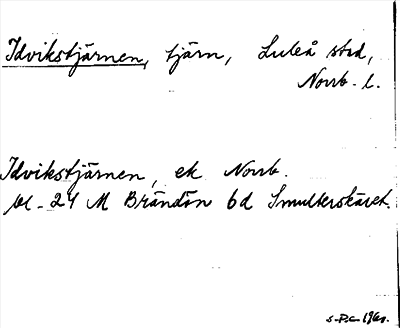 Idvikstjärnen, tjärn, Luleå stad,
Norrb. l.
Idvikstjärnen, ek Norrb.
bl. 24 M Brändön 6d Smulterskäret.